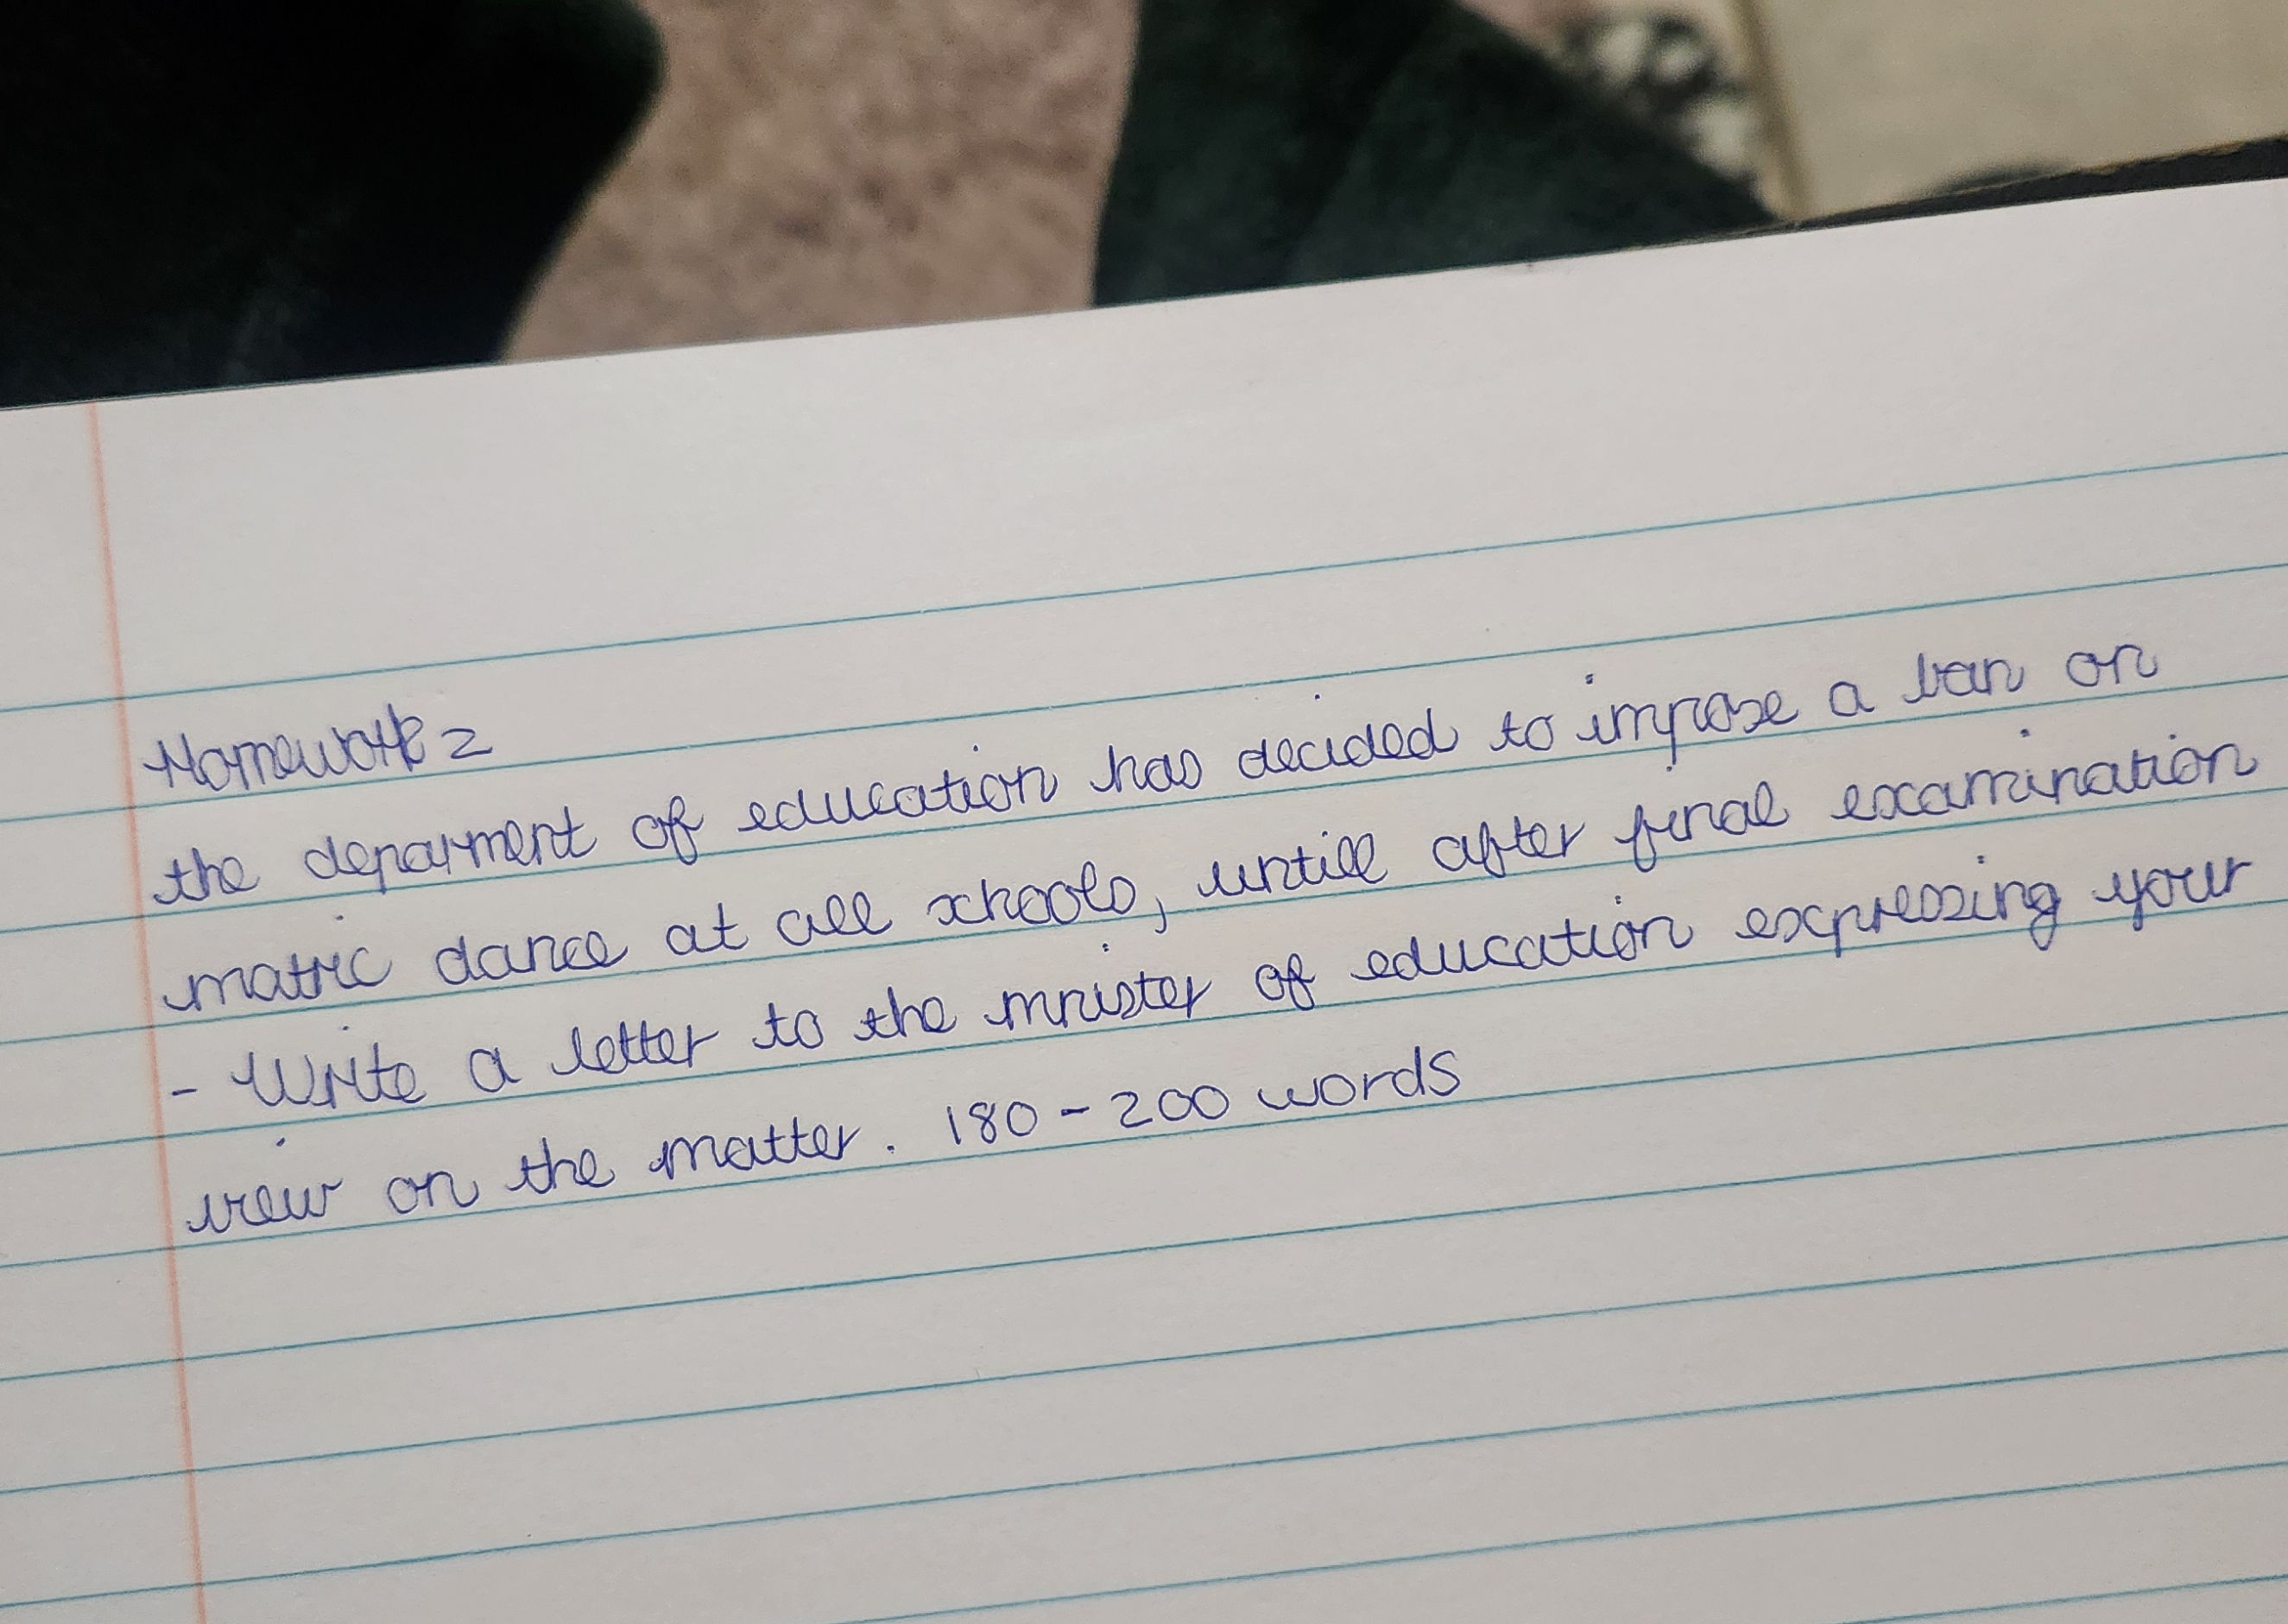 Homework 2
the deparment of education has decided to impose a ban on
matric dance at all schools, untill after final examination
- Write a letter to the mnister of education expressing your
view on the matter. 180 - 200 words